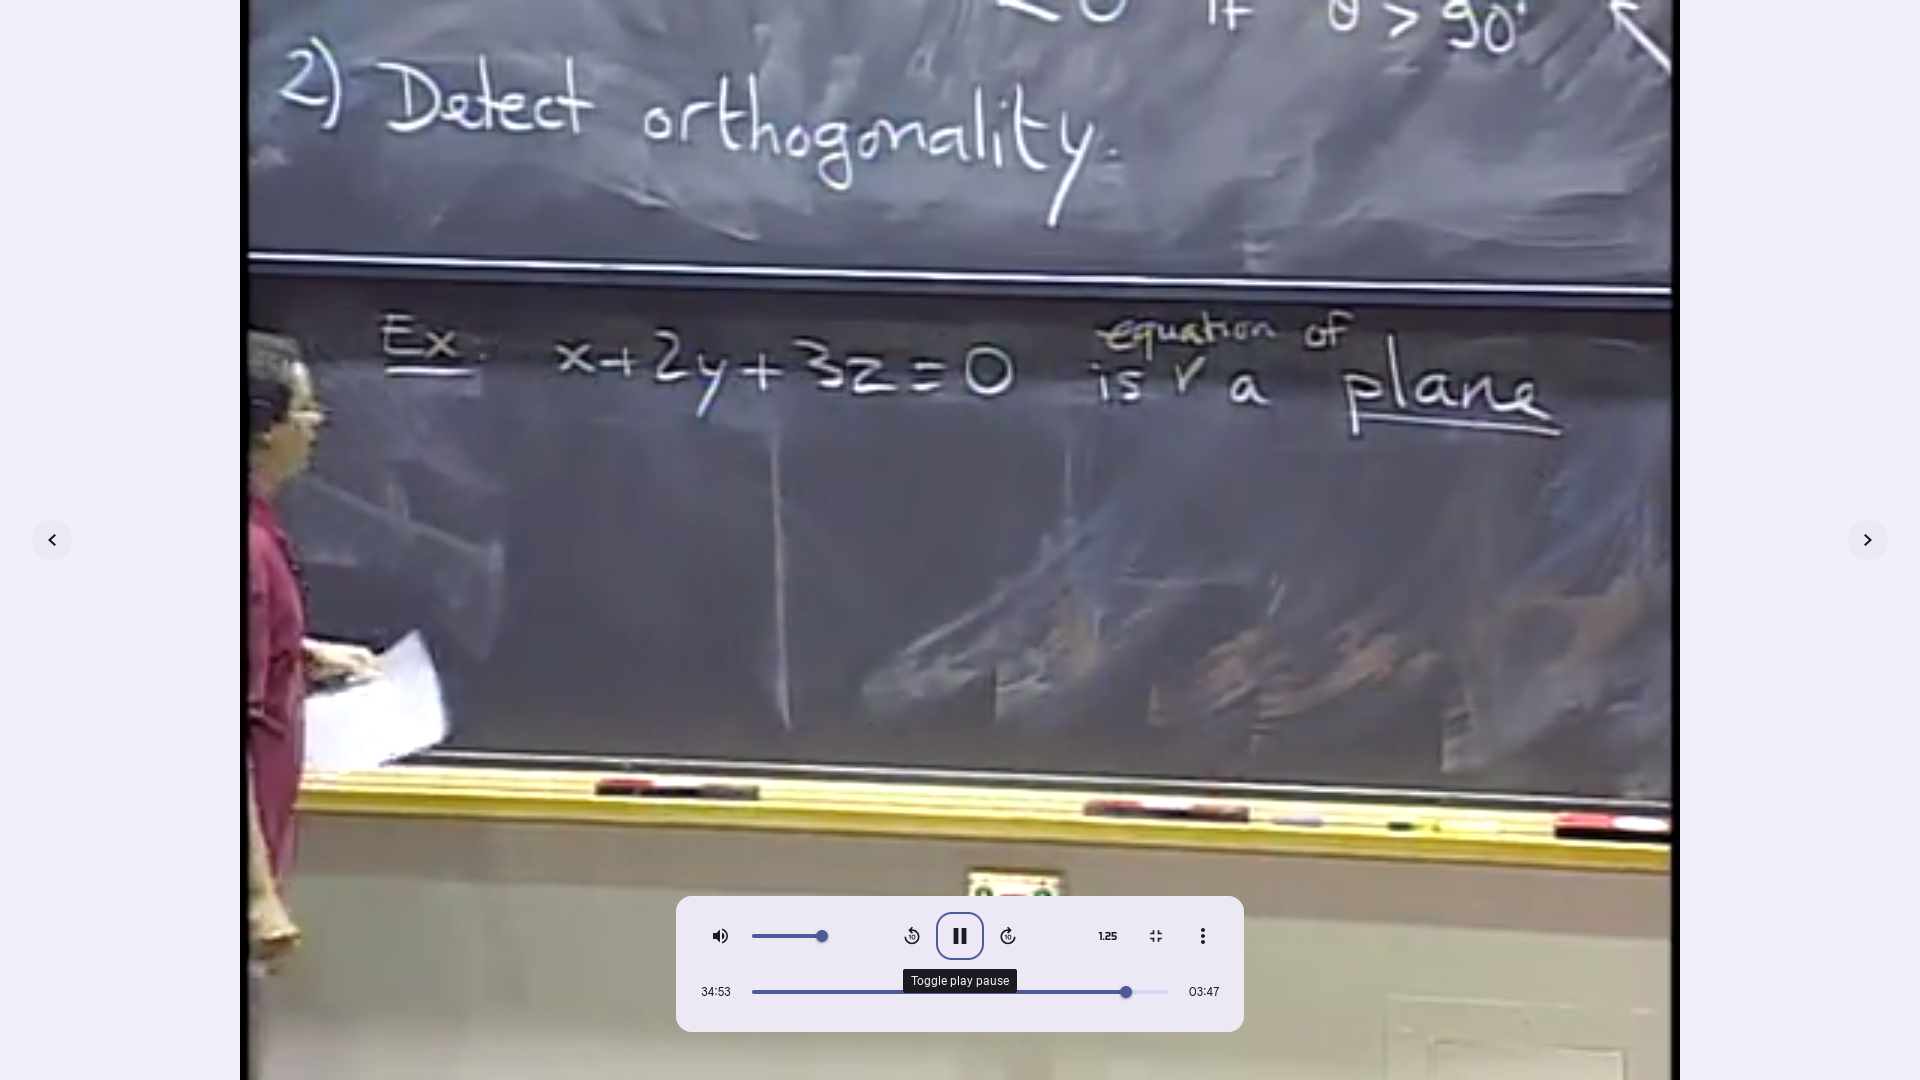 < 0 if θ > 90°
2) Detect orthogonality.
Ex: x+2y+3z=0 is equation of a plane
10
10
1.25
Toggle play pause
34:53
03:47